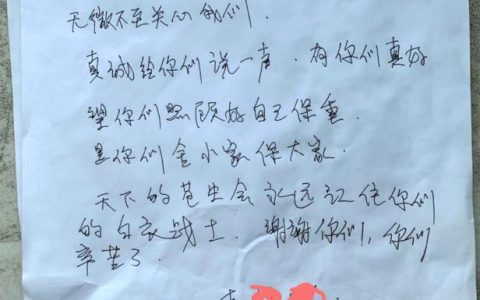 无微不至关心我们.
真诚给你们说一声.有你们真好
望你们照顾好自己保重.
是你们舍小家保大家.
天下的苍生会永远记住你们
的白衣战士.谢谢你们,你们
辛苦了.